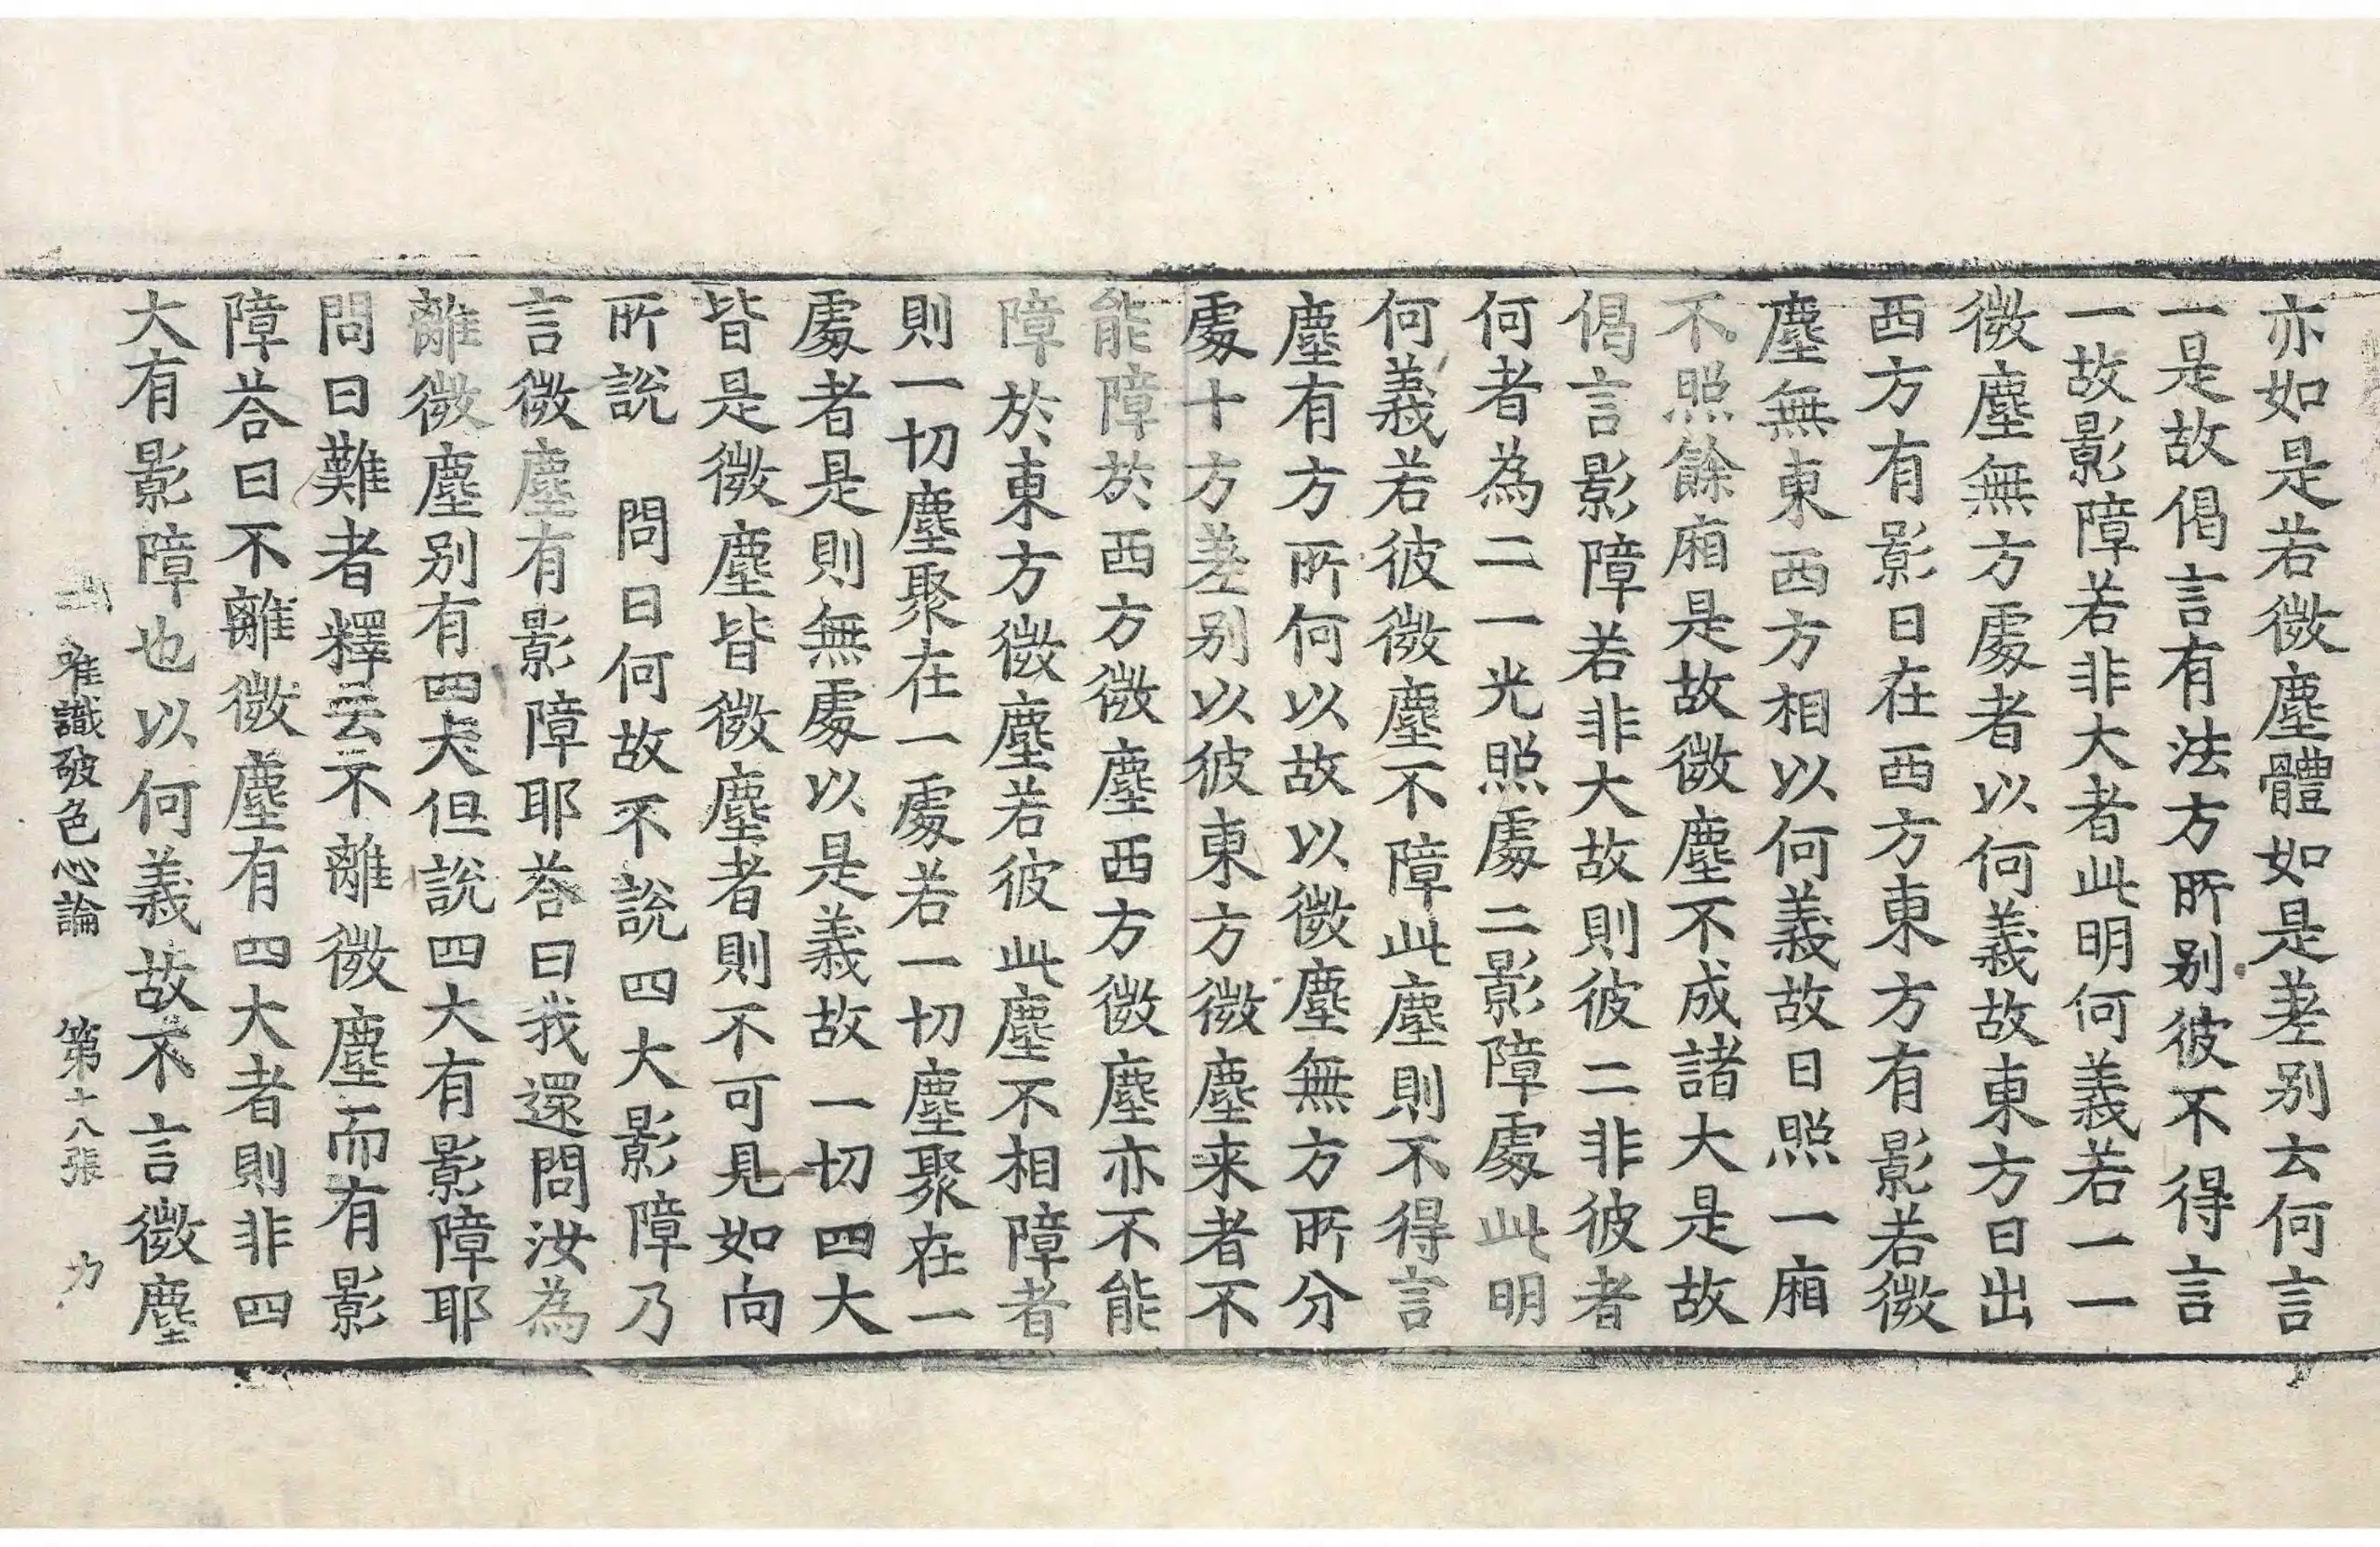 亦如是若微塵體如是差別云何言
一是故偈言有法方所別彼不得言
一故影障若非大者此明何義若一一
微塵無方處者以何義故東方日出
西方有影日在西方東方有影若微
塵無東西方相以何義故日照一廂
不照餘廂是故微塵不成諸大是故
偈言影障若非大故則彼二非彼者
何者為二一光照處二影障處此明
何義若彼微塵不障此塵則不得言
塵有方所何以故以微塵無方所分
處十方差別以彼東方微塵来者不
能障於西方微塵西方微塵亦不能
障於東方微塵若彼此塵不相障者
則一切塵聚在一處若一切塵聚在一
處者是則無處以是義故一切四大
皆是微塵皆微塵者則不可見如向
所說 問曰何故不說四大影障乃
言微塵有影障耶荅曰我還問汝為
離微塵別有四大但說四大有影障耶
問曰難者釋云不離微塵而有影
障荅曰不離微塵有四大者則非四
大有影障也以何義故不言微塵
唯識破色心論 第十八張 力